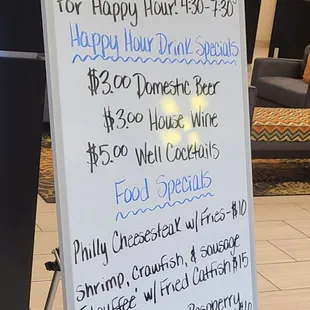 for Happy Hour! 4:30-7:30
Happy Hour Drink Specials
$3.00 Domestic Beer
$3.00 House Wine
$5.00 Well Cocktails
Food Specials
Philly Cheesesteak w/ Fries-$10
Shrimp, Crawfish, & Sausage
Etouffee' w/ Fried Catfish $15
Raspberry
$10